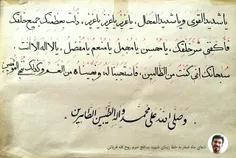 یا شدید القوی و یا شدید المحال، یا عزیز یا عزیز یا عزیز، ذلت بعظمتک جمیع خلقک
فاکفنی شر خلقک، یا محسن یا مجمل یا منعم یا مفضل، یا لا اله الا انت
سبحانک انی کنت من الظالمین، فاستجبنا له و نجیناه من الغم و کذلک ننجی المؤمنین
و صلی الله علی محمد و آله الطیبین الطاهرین
دعای ماه صفر به خط زیبای شهید مدافع حرم روح الله قربانی